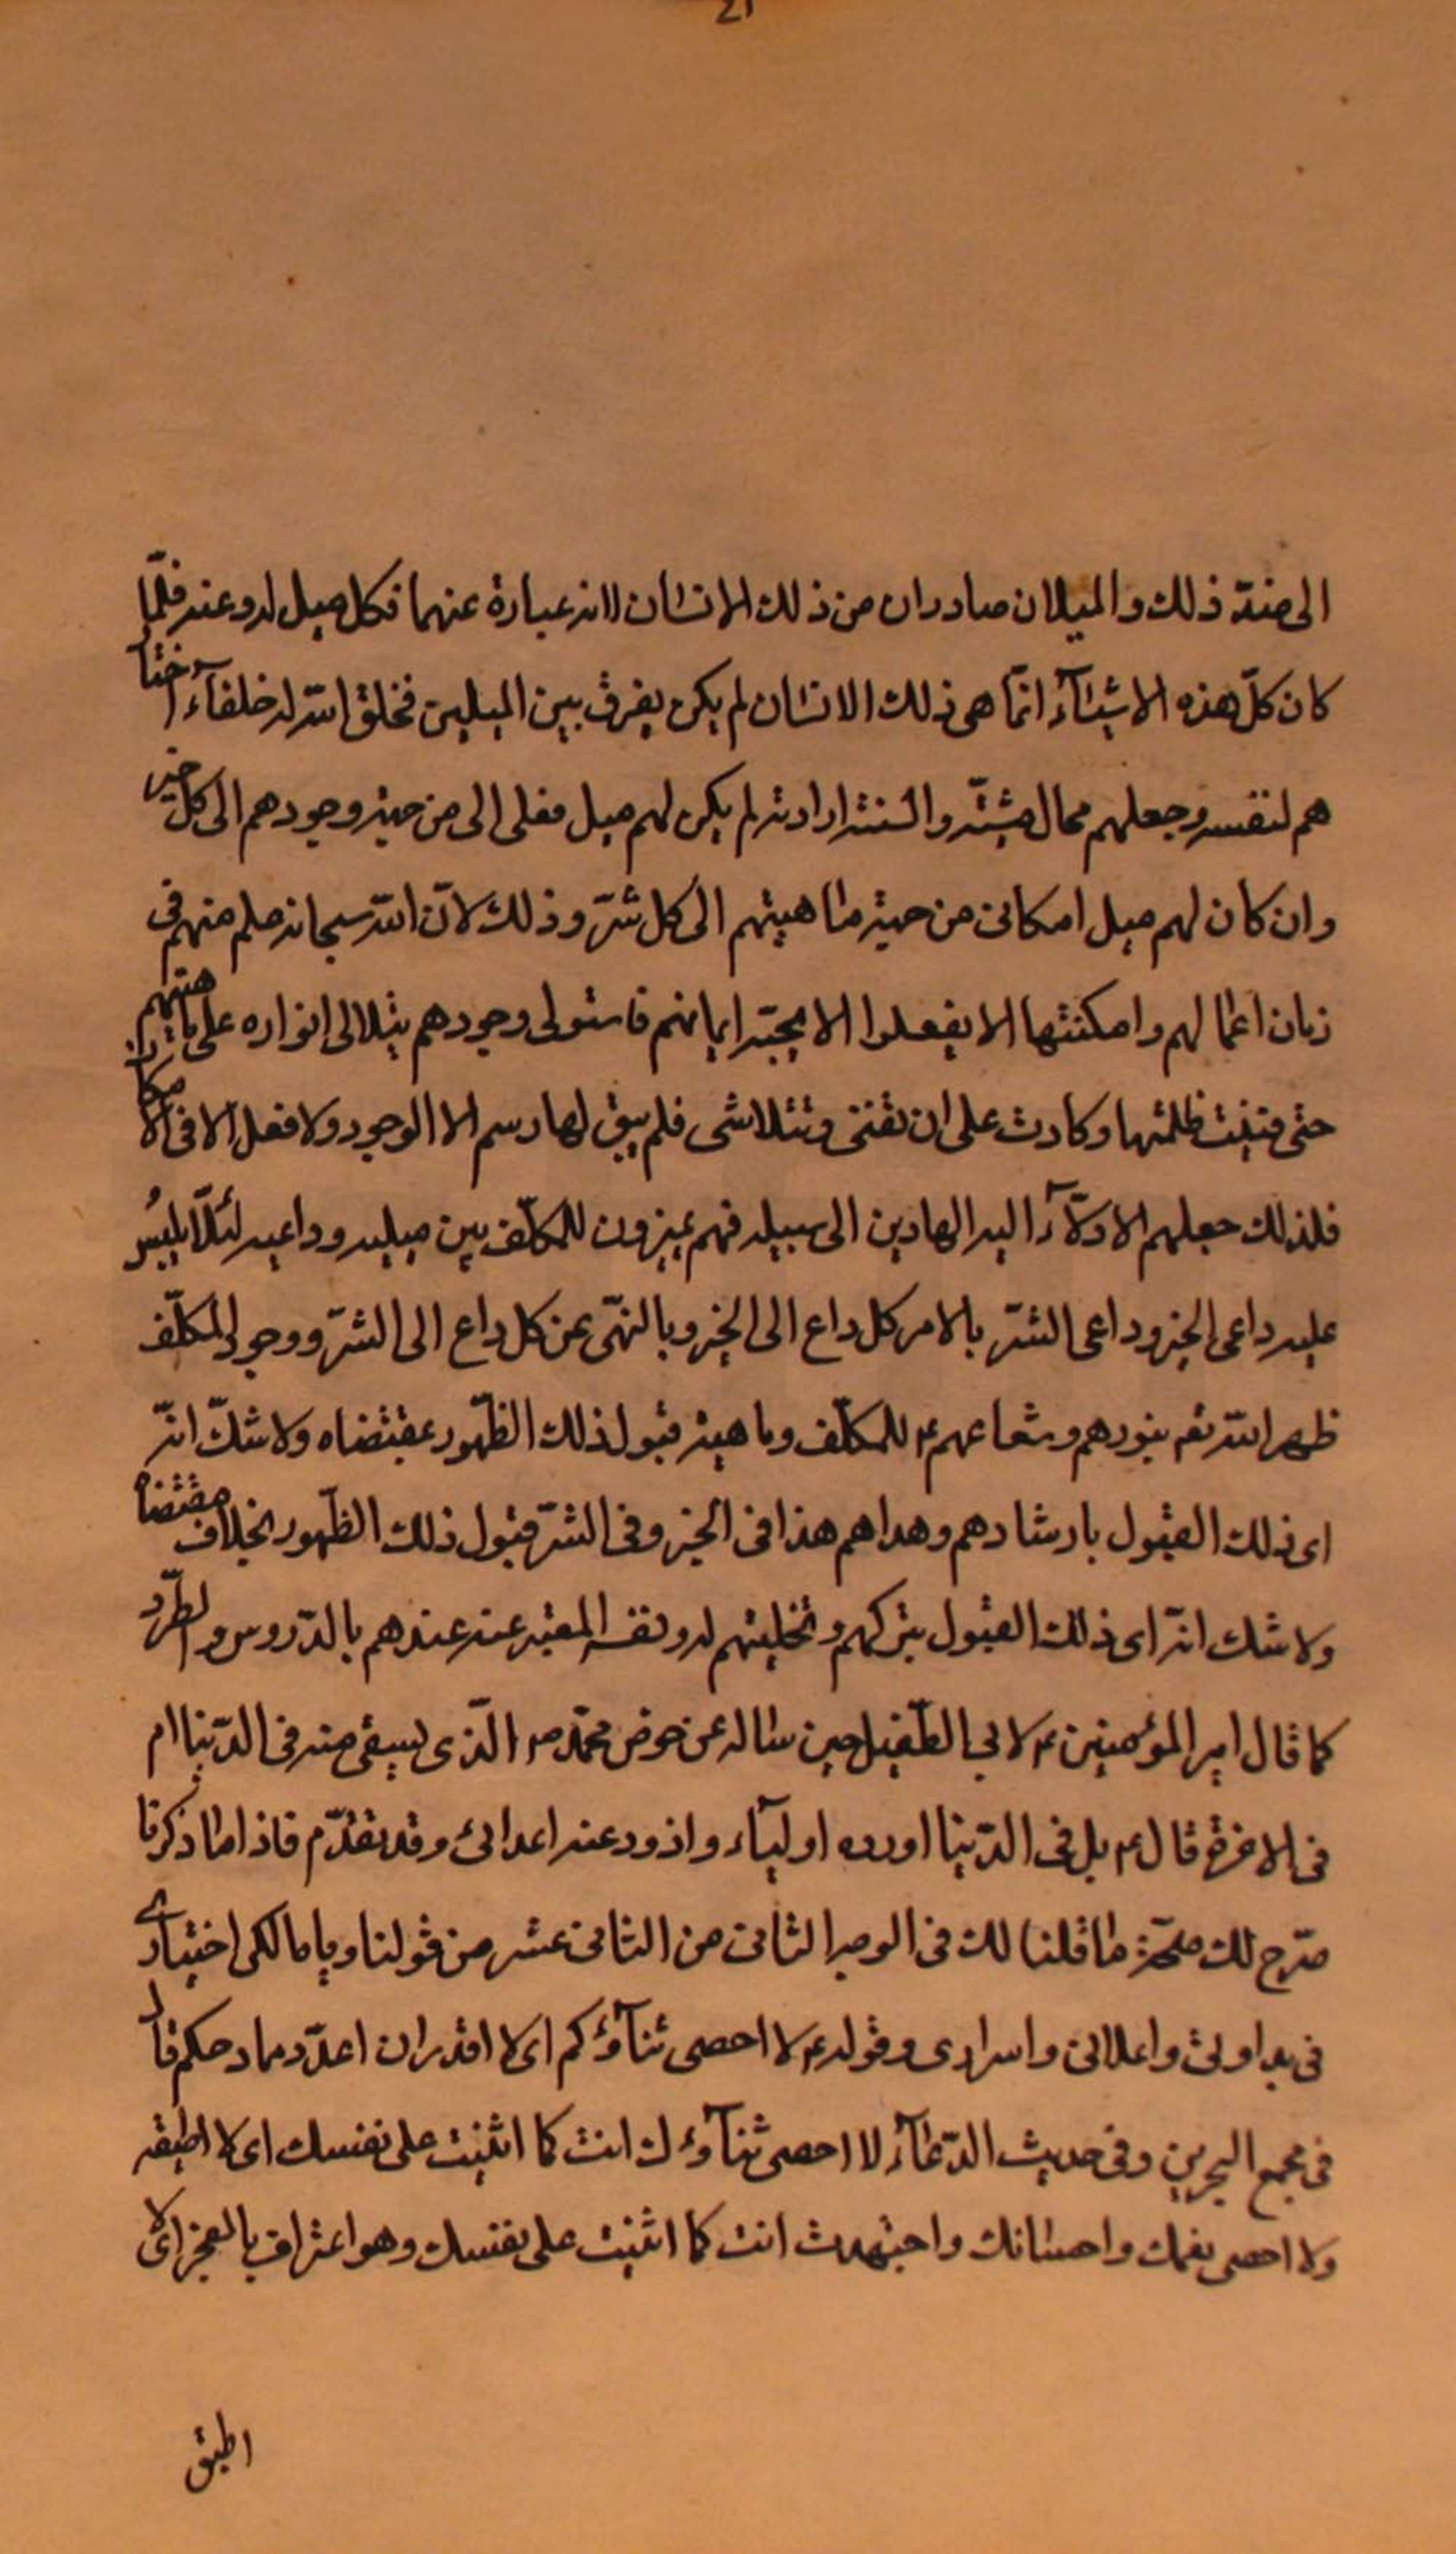 الى ضدّ ذلك والميلان صادران من ذلك الانسان لانه عبارة عنهما فكل ميل له وعنه فلمّا
كان كلّ هذه الاشيآء انمّا هى ذلك الانسان لم يكن يفرق بين الميلين فخلق الله له خلفآء اختا
هم لنفسه وجعلهم محال مشيّته والسنة ارادته لم يكن لهم ميل فعلى الى من حيث وجودهم الى كل خير
وان كان لهم ميل امكانى من حيث ماهيتهم الى كل شرّ وذلك لانّ الله سبحانه علم منهم فى
زمان اعمالهم وامكنتها الا يفعلوا الا بمحبته ايمانهم فاستولى وجودهم بتلالى انواره على ماهيتهم
حتى فنيت ظلمتها وكادت على ان تفنى وتتلاشى فلم يبق لها رسم الا الوجود ولا فعل الا فى الامكان
فلذلك جعلهم الادلّآء اليه الهادين الى سبيله فهم يميزون للمكلّف بين ميليه وداعييه لئلّا يلبس
عليه داعى الخير وداعى الشرّ بالامر كل داع الى الخير وبالنهّى عن كل داع الى الشرّ ووجود المكلّف
ظهر الله تع بنورهم وشعاعهم ع للمكلّف وماهيته قبول ذلك الظّهور بمقتضاه ولا شكّ انّه
اى ذلك القبول بارشادهم وهداهم هذا فى الخير وفى الشرّ قبول ذلك الظّهور بخلاف مقتضاه
ولا شك انّه اى ذلك القبول بتركهم وتخليتهم له ونفسه المعبّر عنه عندهم بالذّود والطّرد
كما قال امير المؤمنين ع لابي الطّفيل حين ساله عن حوض محمّد ص الّذى يسقى منه فى الدّنيا ام
فى الاخرة قال ع بل فى الدّنيا اورده اوليآء واذود عنه اعدائى وقد تقدّم فاذا ما ذكرنا
صرّح لك صحّة ما قلنا لك فى الوجه الثانى من الثانى عشر من قولنا ويا مالكى اختيارى
فى بد اولى واعلانى واسرارى وقوله ع لا احصى ثنآؤكم اى لا اقدر ان اعدّد مادحكم قال
فى مجمع البحرين وفى حديث الدّعآء لا احصى ثنآؤك انت كما اثنيت على نفسك اى لا اطيقه
ولا احصى نعمك واحسانك واجتهدت انت كما اثنيت على نفسك وهو اعتراف بالعجز اى لا
اطيق